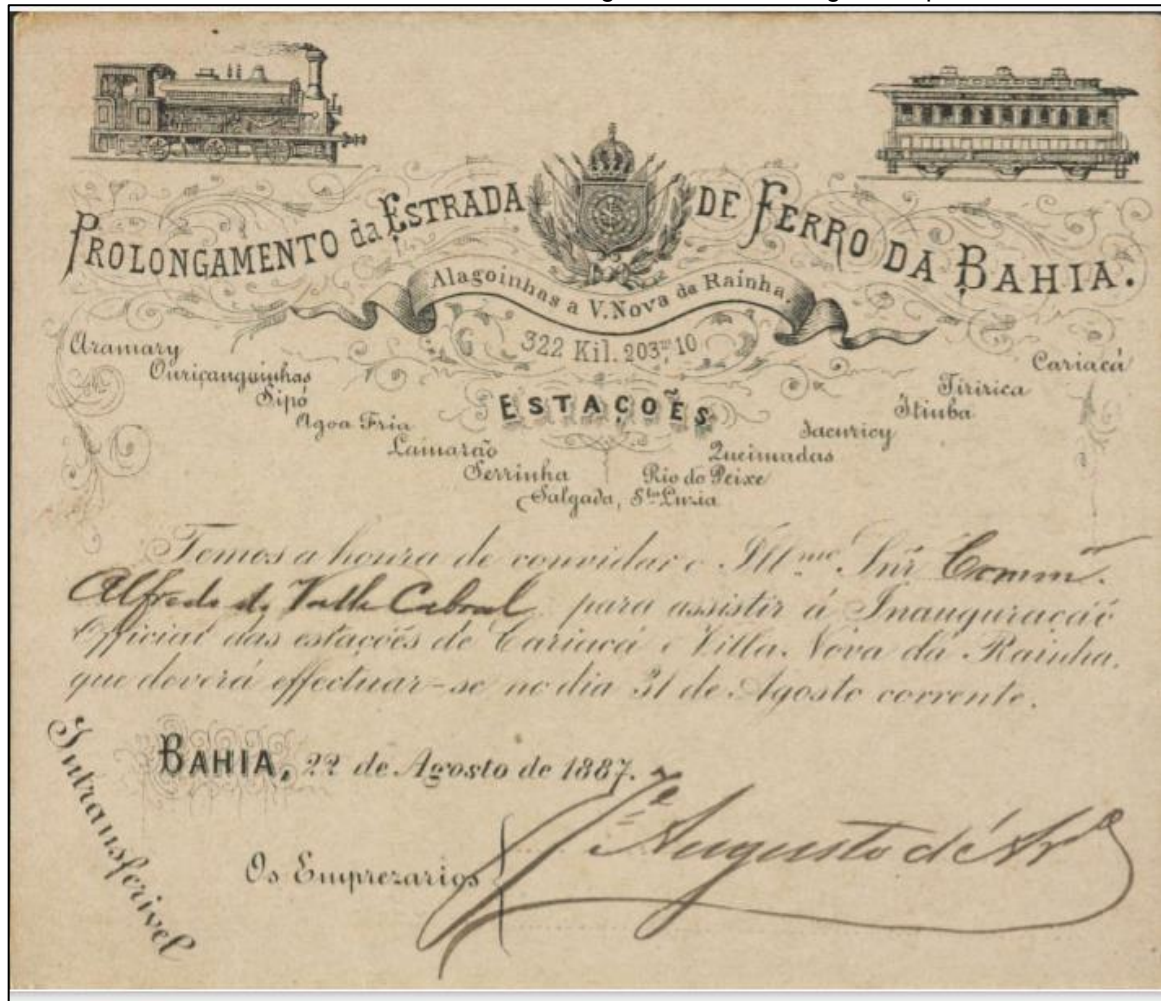 PROLONGAMENTO da ESTRADA DE FERRO DA BAHIA.
Alagoinhas a V. Nova da Rainha.
322 Kil. 203,m 10
ESTAÇOẼS
Aramary
Ouriçanguinhas
Sipó
Agoa Fria
Lamarão
Serrinha
Salgada, Sta Luzia
Rio do Peixe
Queimadas
Jacuricy
Itiuba
Tiririca
Cariacá
Temos a honra de convidar o Illmo Snr Comm.
Alfredo do Valle Cabral para assistir á Inauguração
Official das estações de Cariacá e Villa Nova da Rainha,
que deverá effectuar-se no dia 31 de Agosto corrente.
BAHIA, 22 de Agosto de 1887.
Intransferivel
Os Emprezarios
Augusto